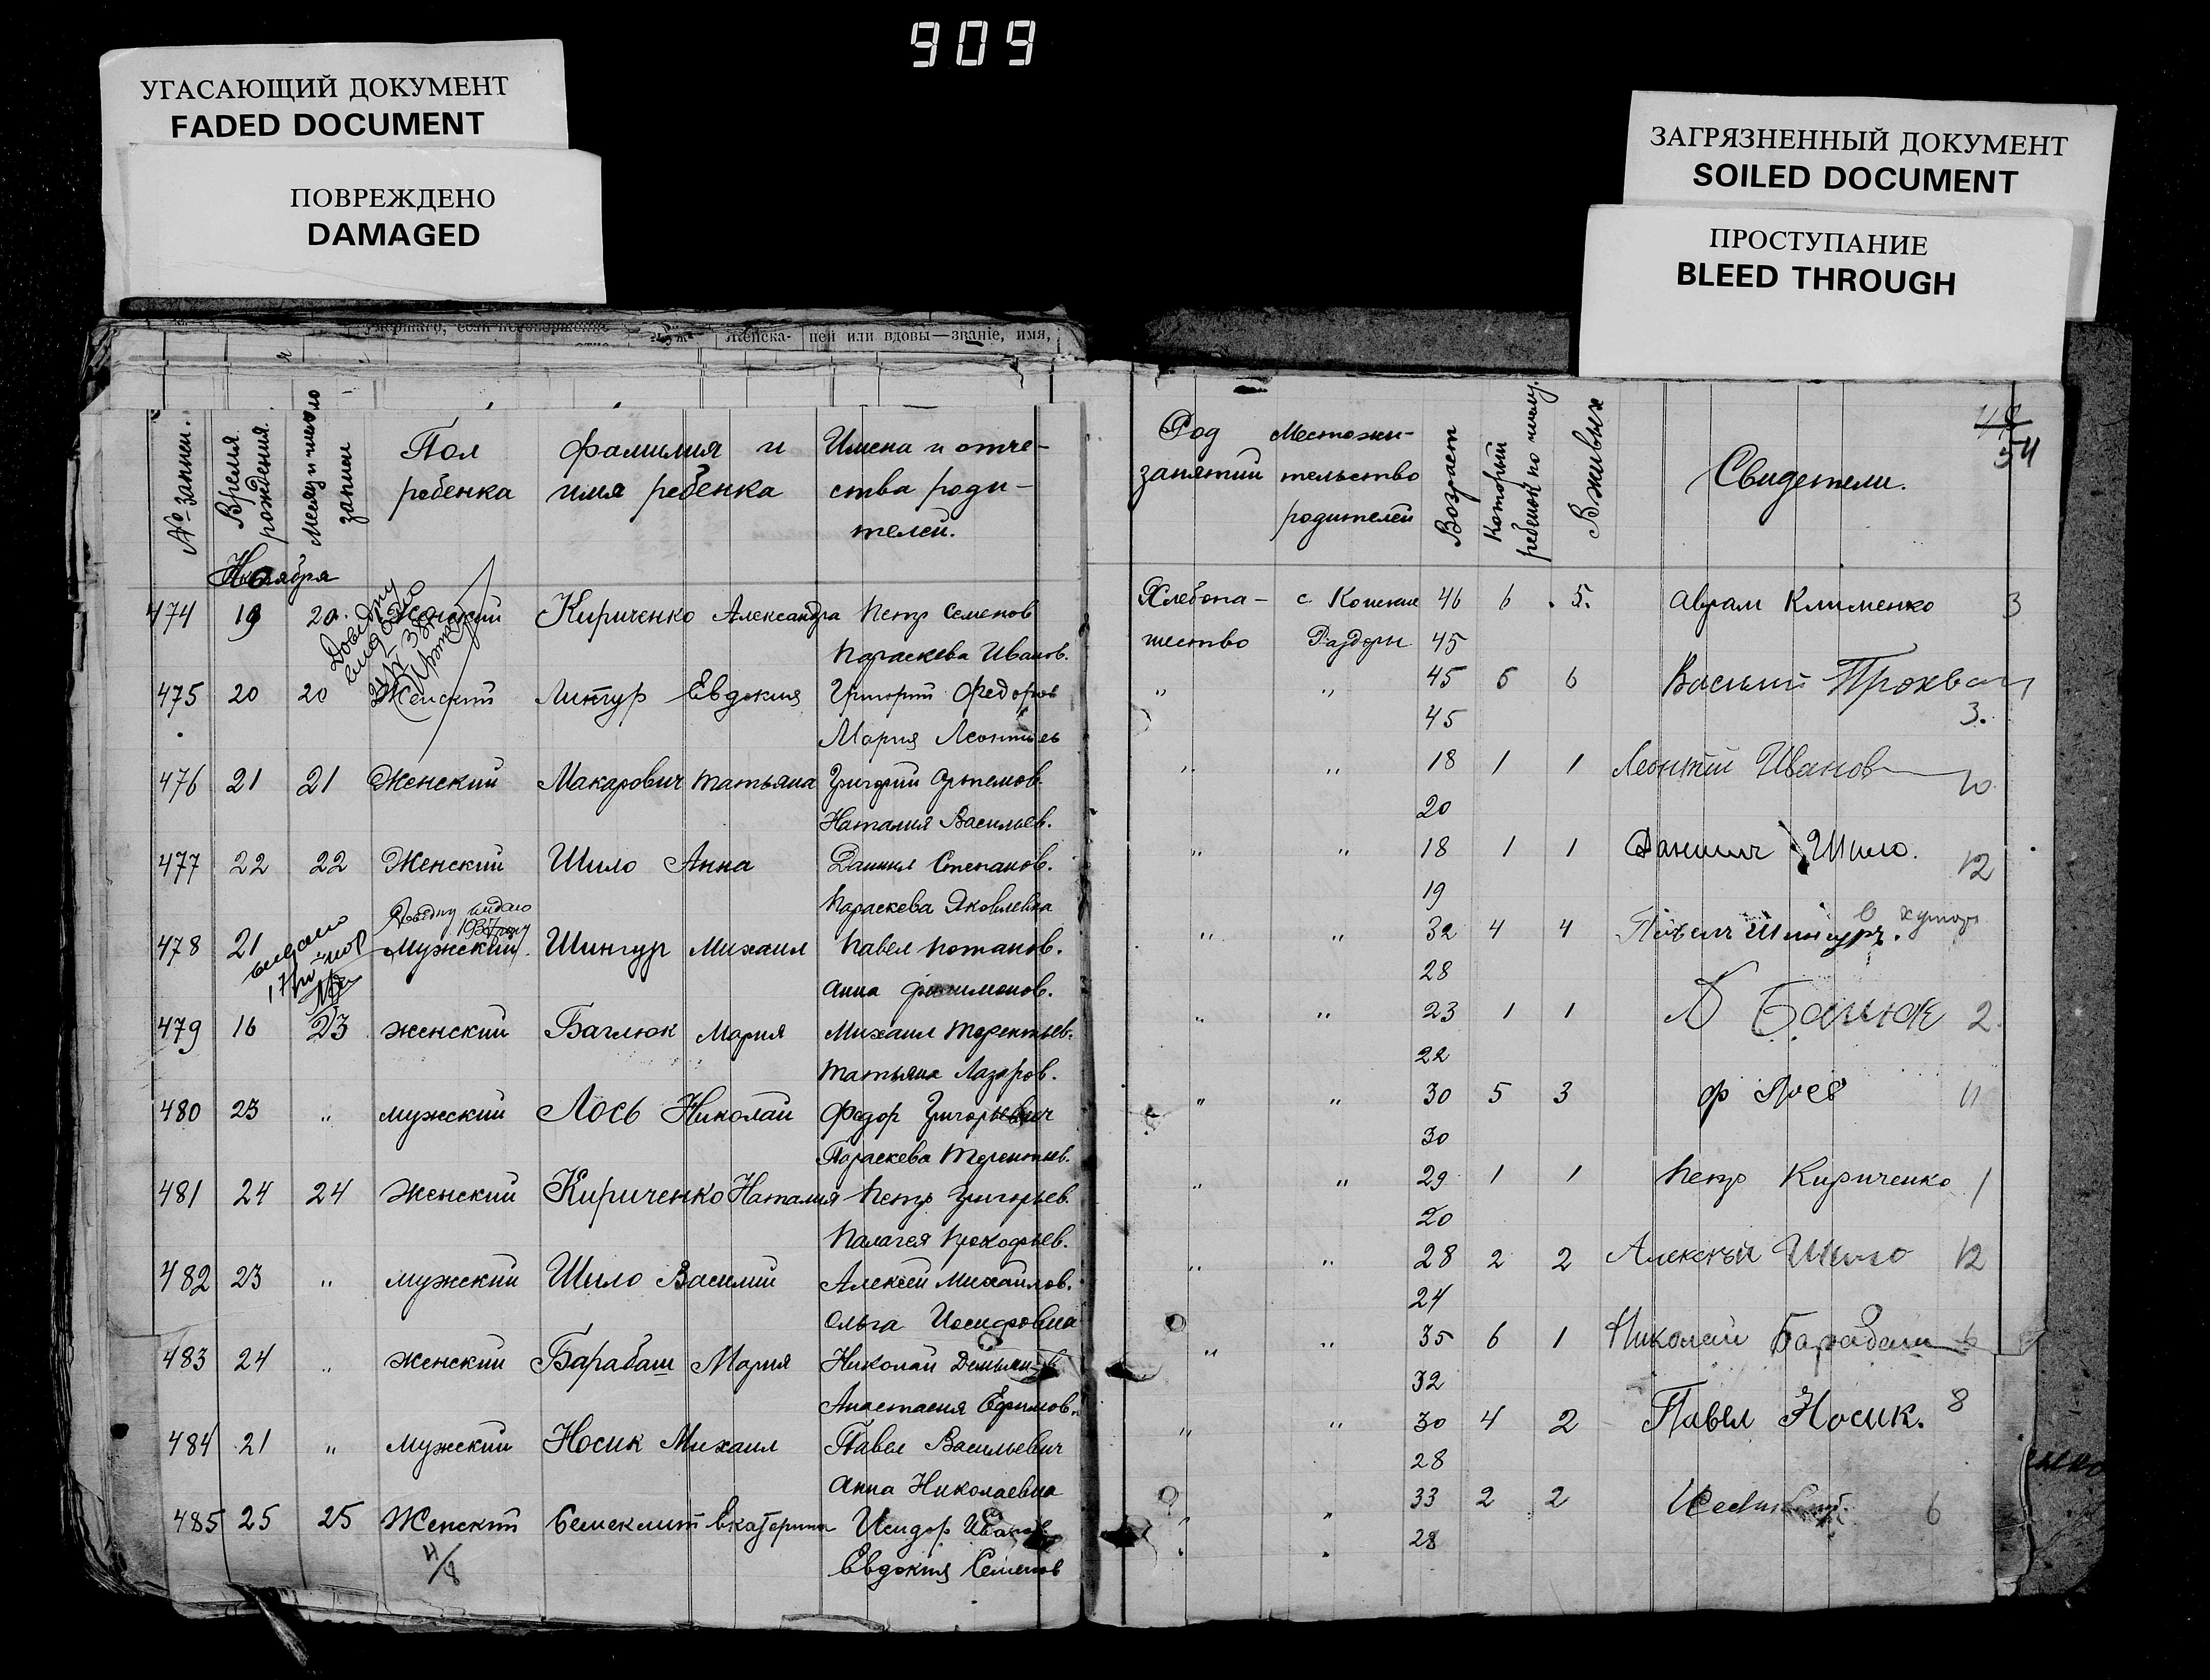 909
УГАСАЮЩИЙ ДОКУМЕНТ
FADED DOCUMENT
ПОВРЕЖДЕНО
DAMAGED
ЗАГРЯЗНЕННЫЙ ДОКУМЕНТ
SOILED DOCUMENT
ПРОСТУПАНИЕ
BLEED THROUGH
Женска- ней или вдовы—званіе, имя,
54
№ записи.
Время рождения.
Месяц и число записи
Пол ребенка
Фамилия и имя ребенка
Имена и отче-
ства роди-
телей.
Род занятий
Местожи-
тельство
родителей
Возраст
Который ребенок по числу.
В живых
Свидетели.
Ноября
474 19 20. Женский Кириченко Александра Петр Семенов Хлебопа- с. Конские 46 6 5. Аврам Клименко 3
Параскева Иванов. шество Раздоры 45
475 20 20 Женский Лингур Евдокия Григорий Федоров " " 45 6 6 Василий
Мария Леонтьев 45 3.
476 21 21 Женский Макарович Татьяна Григорий Артемов. " " 18 1 1 Леонтий Иванов 10
Наталия Васильев. 20
477 22 22 Женский Шило Анна Даниил Степанов. " " 18 1 1 Даниил Шило. 12
Параскева Яковлевна 19
478 21 Мужский Шингур Михаил Павел Потапов. " " 32 4 4 Шингуръ.
Анна 28
479 16 23 женский Баглюк Мария Михаил Терентьев. " " 23 1 1 2
Татьяна Лазаров. 22
480 23 " мужский Лось Николай Федор Григорьевич " " 30 5 3 Ф Лось 11
Параскева Терентьев. 30
481 24 24 Женский Кириченко Наталия Петр Григорьев. " " 29 1 1 Петр Кириченко 1
Палагея Прокофьев. 20
482 23 " мужский Шило Василий Алексей Михайлов. " " 28 2 2 Алексей Шило 12
Ольга Иосифовна 24
483 24 " Женский Барабаш Мария Николай Демьян " " 35 6 1 Николай Барабаш 6
Анастасия Ефимовн 32
484 21 " Мужский Носик Михаил Павел Васильевич " " 30 4 2 Павел Носик. 8
Анна Николаевна 28
485 25 25 Женский Екатерина Исидор Иванов " " 33 2 2 6
Евдокия Семенов 28
4/8